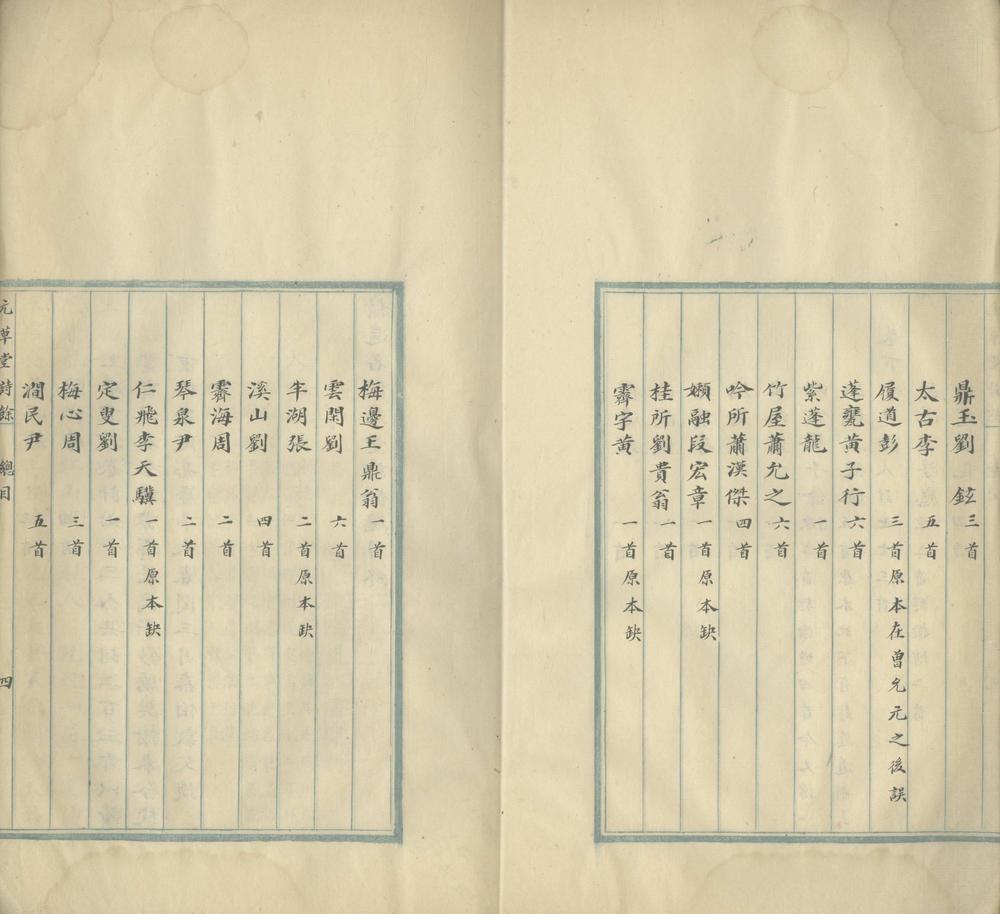 鼎玉劉鉉三首
太古李五首
履道彭三首原本在曾允元之後誤
蓬甕黃子行六首
紫蓬龍一首
竹屋蕭允之六首
吟所蕭漢傑四首
嬾融段宏章一首原本缺
桂所劉貴翁一首
霽宇黃一首原本缺
梅邊王鼎翁一首
雲閑劉六首
半湖張二首原本缺
溪山劉四首
霽海周二首
琴泉尹二首
仁飛李天驥一首原本缺
定叟劉一首
梅心周三首
澗民尹五首
元草堂詩餘 總目 四